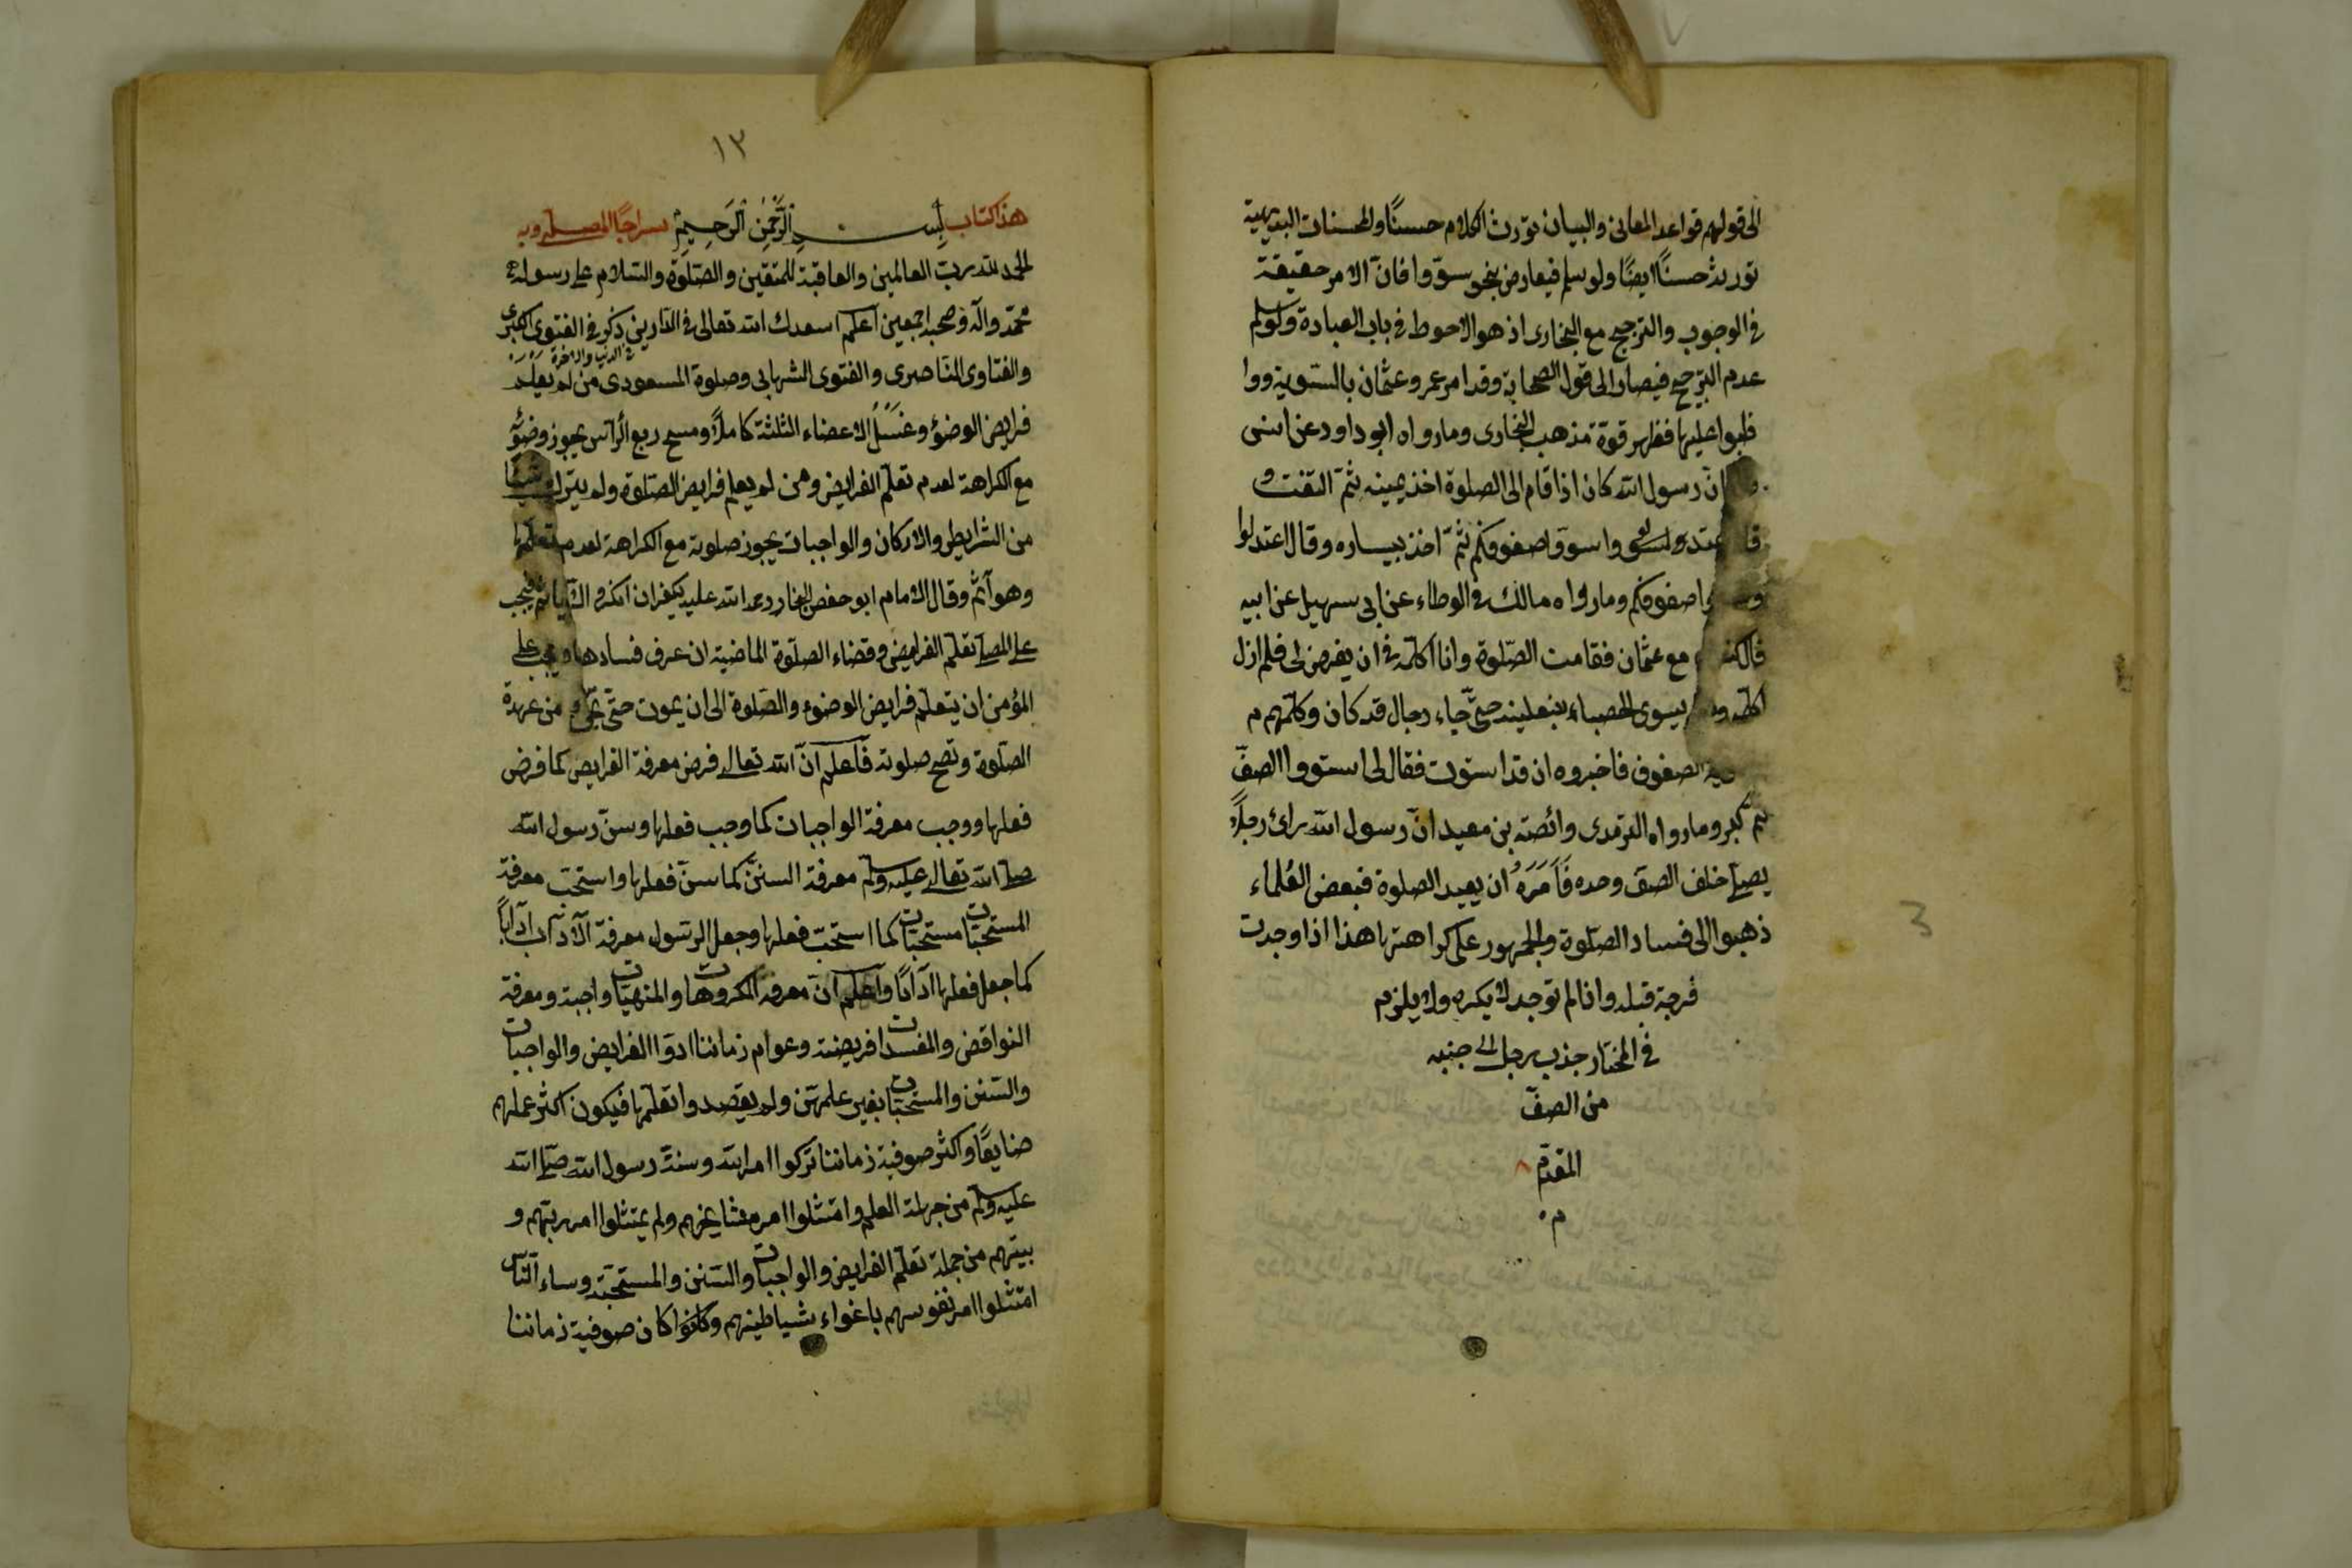 الى قولهم قواعد المعانى والبيان تورث الكلام حسنًا والمحسنات البديهية
تورث حسنًا ايضًا ولو سلم فيعارض بنحو سوّوا فانّ الامر حقيقة
فى الوجوب والترجيح مع البخارى اذ هو الاحوط فى باب العبادة ولو سلم
عدم الترجيح فيصار الى قول الصحابة وقد امر عمر وعثمان بالتسوية ووا
ظبوا عليها فظهر قوة مذهب البخارى وما رواه ابو داود عن انس
انّ رسول الله كان اذا قام الى الصلوة اخذ بيمينه ثمّ التفت و
واسووّا صفوفكم ثمّ اخذ بيساره وقال اعتدلوا
صفوفكم وما رواه مالك فى الوطاء عن ابى سهيل عن ابيه
قال كنت مع عثمان فقامت الصّلوة وانا اكلّمه فى ان يفرض لى فلم ازل
اكلّمه يسوى الحصباء بنعليه حتّى جاء رجال قد كان وكلّهم م
الصفوف فاخبروه ان قد استوت فقال لى استووا الصفّ
ثم كبر وما رواه الترمدى وائصة بن معيد انّ رسول الله رائ رجلاً
يصلّى خلف الصف وحده فَاَمَرَهُ ان يعيد الصلوة فبعض العُلماء
ذهبوا الى فساد الصّلوة والجمهور على كراهتها هذا اذا وجدت
فرجة قبله وانا لم توجد لا يكره ولا يلزم
فى المختار جذب رجل الى جنبه
من الصفّ
المقدّم
م
١٢
هذا كتاب بِسْــــمِ الرَّحْمٰنِ الرَّحِيمِ سراجًا المصلى وبه
الحمد لله ربّ العالمين والعاقبة للمتّقين والصّلوة والسّلام على رسوله
محمّد وآله وصحبه اجمعين اعلم اسعدك الله تعالى فى الدّارين ذكر فى الفتوى الكبرى
فى الدنيا والاخرة
والفتاوى النّاصرى والفتوى الشهابى وصلوة المسعودى من لم يعلم
فرايض الوضؤ وغَسْلُ الاعضاء الثلثة كاملاً ومسح ربع الرأس يجوز وضوئه
مع الكراهة لعدم تعلّم الفرايض ومن لم يعلم فرايض الصّلوة ولم يترك شيئا
من الشرايط والاركان والواجبات يجوز صلوته مع الكراهة لعدم تعلّمها
وهو آثم وقال الامام ابو حفص البخار رحمه الله عليه يكفر ان انكر و الّا يأثم فيجب
على المصلّى تعلّم الفرايض وقضاء الصلّوة الماضية ان عرف فسادها ويجب على
المؤمن ان يتعلّم فرايض الوضوء والصّلوة الى ان يموت حتّى من عهدة
الصلّوة وتصح صلوته فاعلم انّ الله تعالى فرض معرفة الفرايض كما فرض
فعلها ووجب معرفة الواجبات كما وجب فعلها وسنّ رسول الله
صلى الله تعالى عليه وسلم معرفة السننّ كما سنّ فعلها واستحبّ معرفة
المستحبّات مستحبّات كما استحبّ فعلها وجعل الرسول معرفة الآداب آدابًا
كما جعل فعلها آدابًا واعلم انّ معرفة المكروهات والمنهيّات واجبة ومعرفة
النواقض والمفسدات فريضة وعوام زماننا ادوّا الفرايض والواجبات
والسّنن والمستحبّات بغير علمهنّ ولم يقصدوا تعلّمها فيكون اكثر عملهم
ضايعًا واكثر صوفية زماننا تركوا امر الله وسنّة رسول الله صلّى الله
عليه وسلم من جهلة العلم وامتثلوا امر مشايخهم ولم يمتثلوا امر ربّهم و
نبيّهم من جملة تعلّم الفرايض والواجبات والسّنن والمستحبّة وساء النّاس
امتثلوا امر نفوسهم باغواء شياطينهم وكانوا كان صوفية زماننا